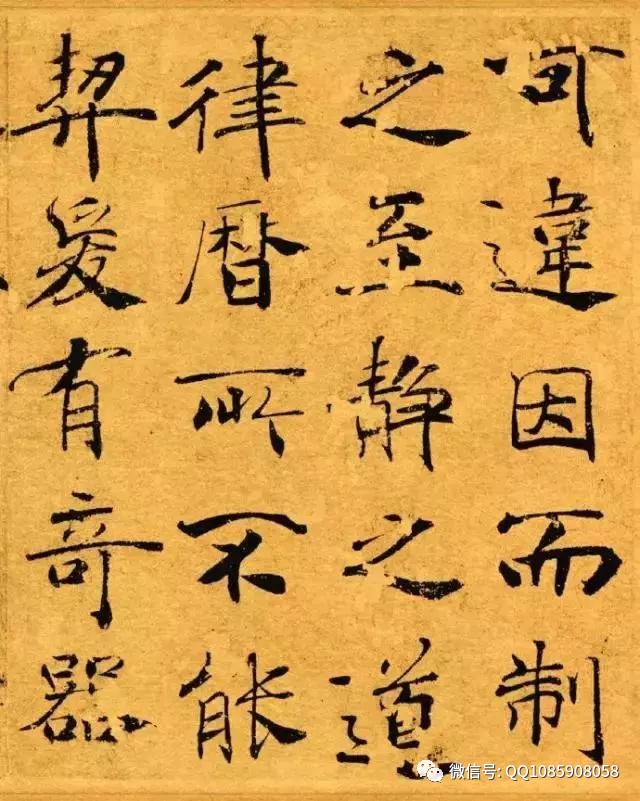 可違因而制
之至靜之道
律曆所不能
契爰有奇器
微信号: QQ1085908058